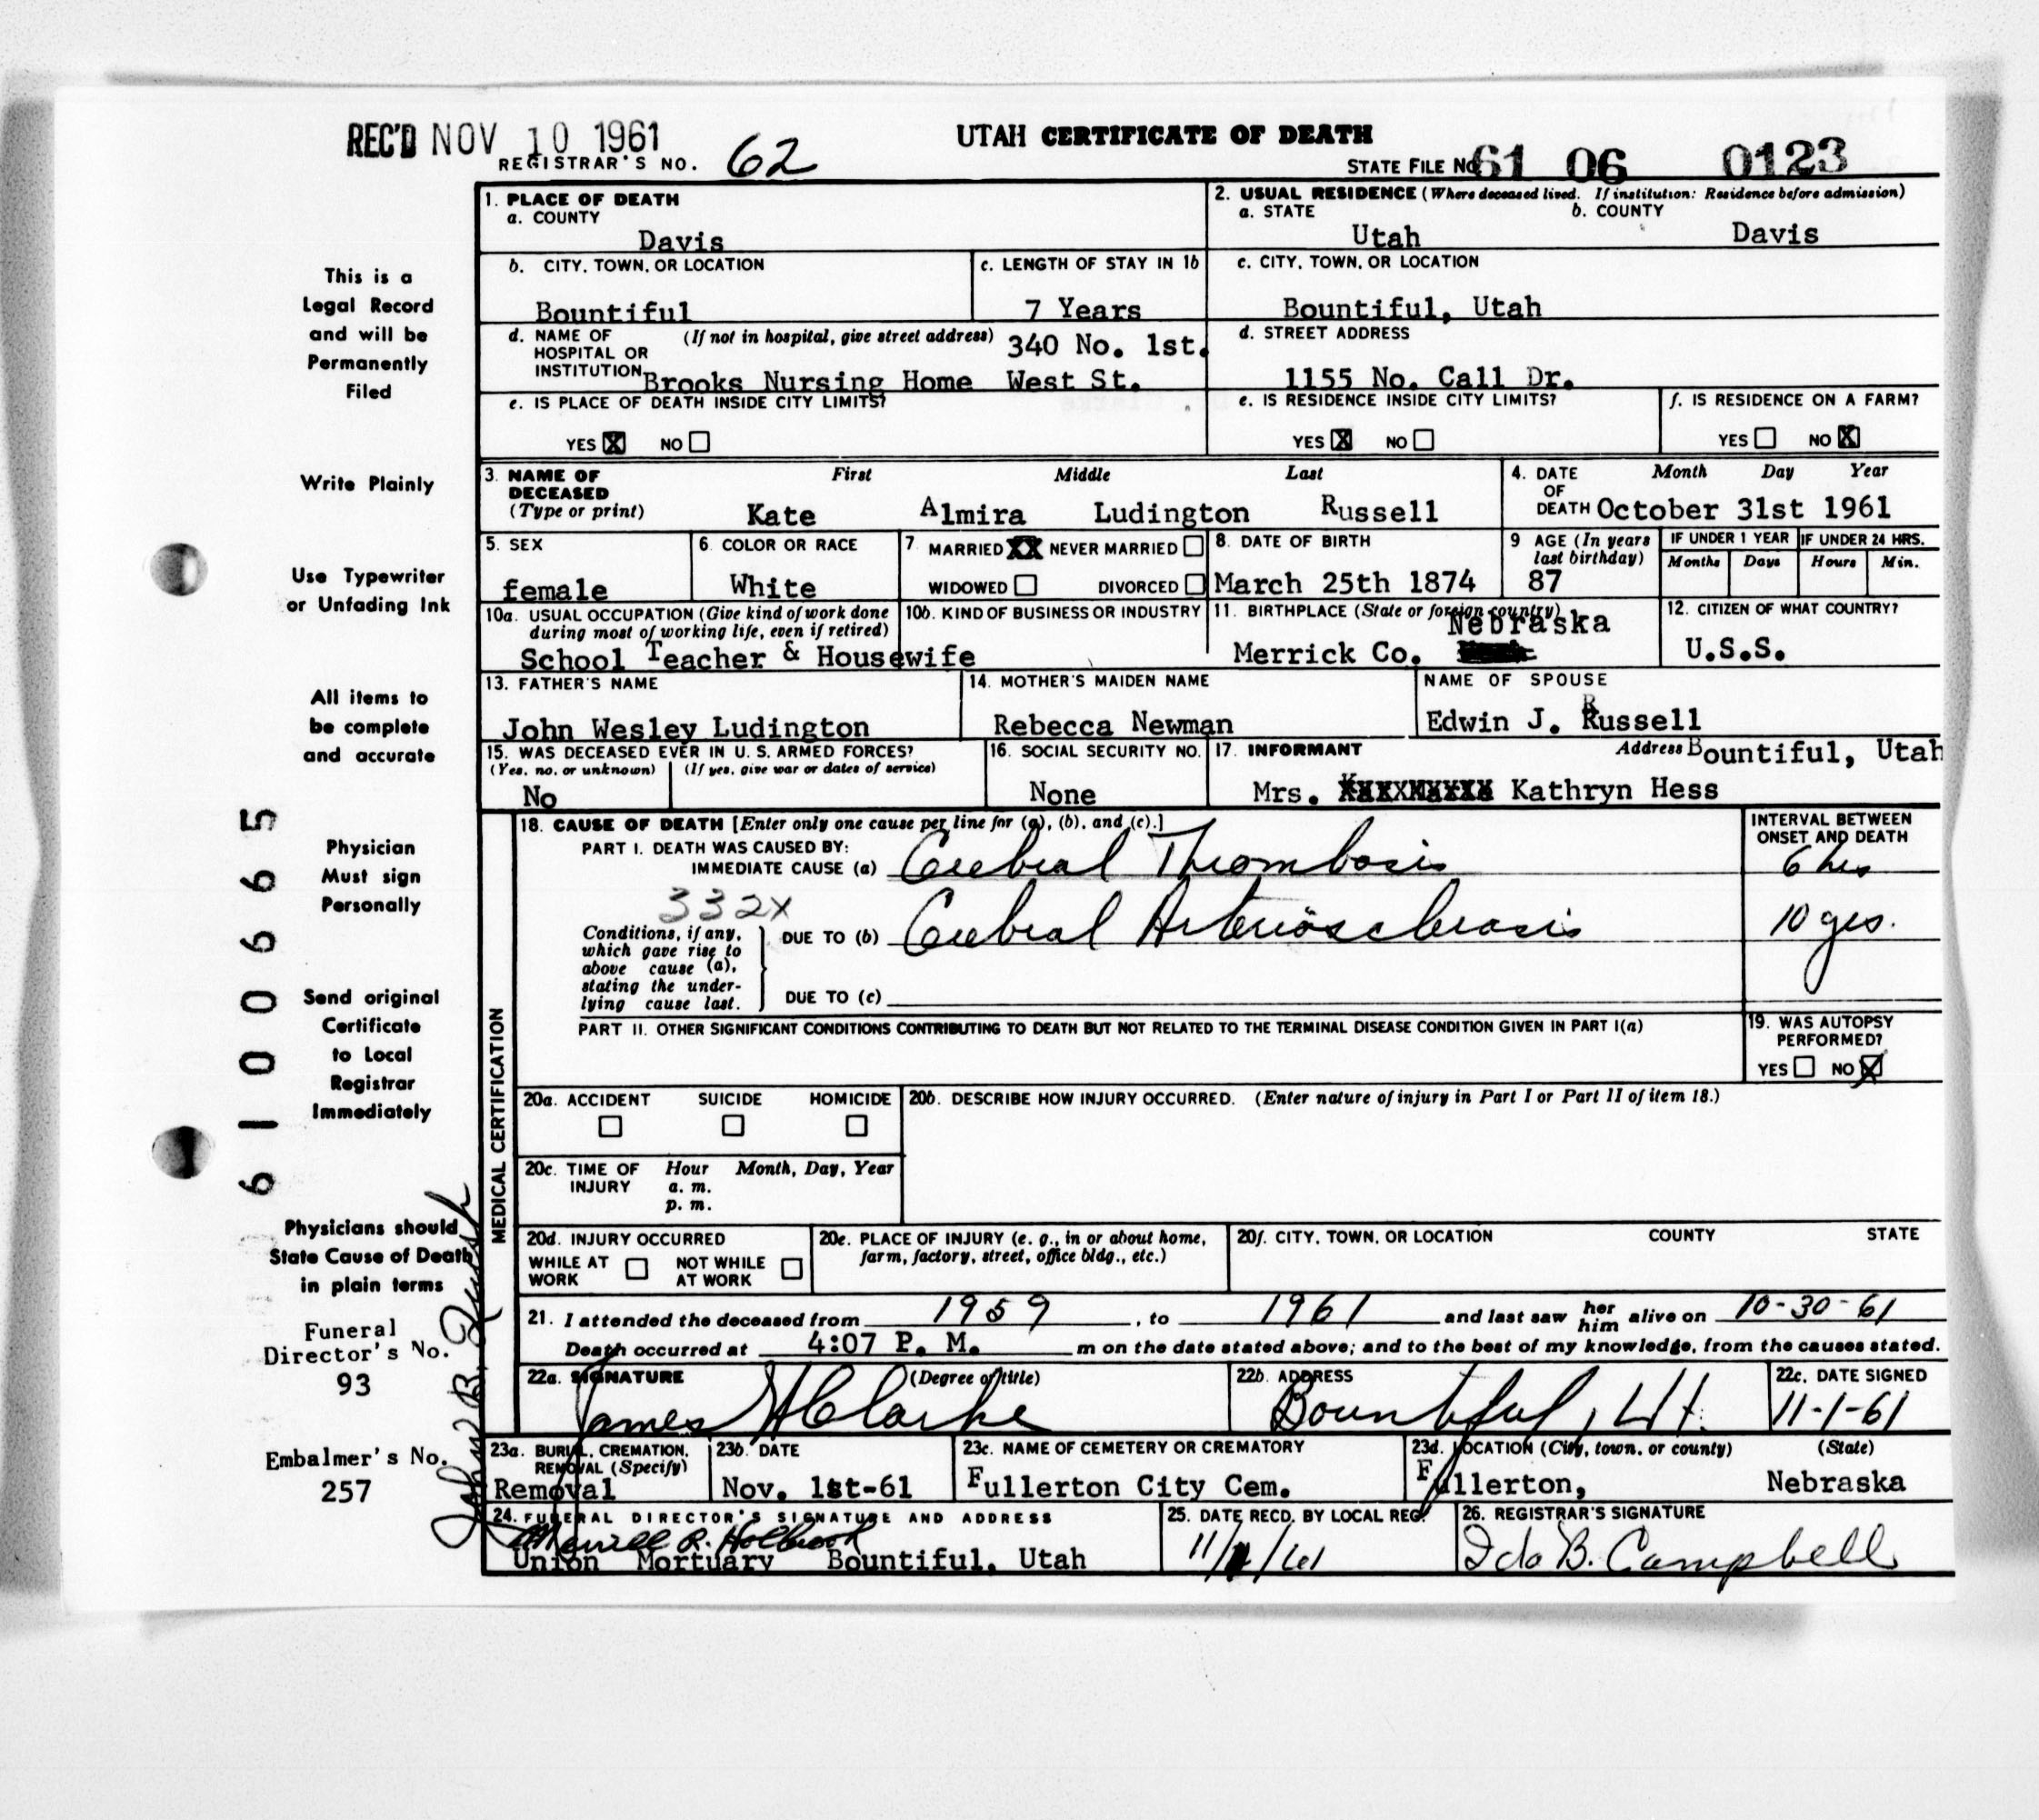 REC'D NOV 10 1961
REGISTRAR'S NO. 62
UTAH CERTIFICATE OF DEATH
STATE FILE NO. 61 06 0123
1. PLACE OF DEATH
a. COUNTY
Davis
2. USUAL RESIDENCE (Where deceased lived. If institution: Residence before admission)
a. STATE b. COUNTY
Utah Davis
b. CITY, TOWN, OR LOCATION
Bountiful
c. LENGTH OF STAY IN 1b
7 Years
c. CITY, TOWN, OR LOCATION
Bountiful, Utah
d. NAME OF HOSPITAL OR INSTITUTION (If not in hospital, give street address) 340 No. 1st.
Brooks Nursing Home West St.
d. STREET ADDRESS
1155 No. Call Dr.
e. IS PLACE OF DEATH INSIDE CITY LIMITS?
YES X NO
e. IS RESIDENCE INSIDE CITY LIMITS?
YES X NO
f. IS RESIDENCE ON A FARM?
YES NO X
3. NAME OF DECEASED (Type or print)
First Middle Last
Kate Almira Ludington Russell
4. DATE OF DEATH
Month Day Year
October 31st 1961
5. SEX
female
6. COLOR OR RACE
White
7. MARRIED XX NEVER MARRIED
WIDOWED DIVORCED
8. DATE OF BIRTH
March 25th 1874
9 AGE (In years last birthday)
87
IF UNDER 1 YEAR IF UNDER 24 HRS.
Months Days Hours Min.
10a. USUAL OCCUPATION (Give kind of work done during most of working life, even if retired)
School Teacher & Housewife
10b. KIND OF BUSINESS OR INDUSTRY
11. BIRTHPLACE (State or foreign country)
Nebraska
Merrick Co.
12. CITIZEN OF WHAT COUNTRY?
U.S.S.
13. FATHER'S NAME
John Wesley Ludington
14. MOTHER'S MAIDEN NAME
Rebecca Newman
NAME OF SPOUSE
Edwin J. Russell
15. WAS DECEASED EVER IN U. S. ARMED FORCES?
(Yes, no, or unknown) (If yes, give war or dates of service)
No
16. SOCIAL SECURITY NO.
None
17. INFORMANT Address Bountiful, Utah
Mrs. Kathryn Hess
MEDICAL CERTIFICATION
18. CAUSE OF DEATH [Enter only one cause per line for (a), (b), and (c).]
PART I. DEATH WAS CAUSED BY:
IMMEDIATE CAUSE (a) Cerebral Thrombosis
332X
Conditions, if any, which gave rise to above cause (a), stating the underlying cause last.
DUE TO (b) Cerebral Arteriosclerosis
DUE TO (c)
INTERVAL BETWEEN ONSET AND DEATH
6 hrs
10 yrs.
PART II. OTHER SIGNIFICANT CONDITIONS CONTRIBUTING TO DEATH BUT NOT RELATED TO THE TERMINAL DISEASE CONDITION GIVEN IN PART I(a)
19. WAS AUTOPSY PERFORMED?
YES NO X
20a. ACCIDENT SUICIDE HOMICIDE
20b. DESCRIBE HOW INJURY OCCURRED. (Enter nature of injury in Part I or Part II of item 18.)
20c. TIME OF INJURY Hour Month, Day, Year
a. m.
p. m.
20d. INJURY OCCURRED
WHILE AT WORK NOT WHILE AT WORK
20e. PLACE OF INJURY (e. g., in or about home, farm, factory, street, office bldg., etc.)
20f. CITY, TOWN, OR LOCATION COUNTY STATE
21. I attended the deceased from 1959, to 1961 and last saw her him alive on 10-30-61
Death occurred at 4:07 P. M. m on the date stated above; and to the best of my knowledge, from the causes stated.
22a. SIGNATURE (Degree or title)
James H Clarke
22b. ADDRESS
Bountiful, Ut.
22c. DATE SIGNED
11-1-61
23a. BURIAL, CREMATION, REMOVAL (Specify)
Removal
23b. DATE
Nov. 1st-61
23c. NAME OF CEMETERY OR CREMATORY
Fullerton City Cem.
23d. LOCATION (City, town, or county) (State)
Fullerton, Nebraska
24. FUNERAL DIRECTOR'S SIGNATURE AND ADDRESS
Merrill R. Holbrook
Union Mortuary Bountiful, Utah
25. DATE RECD. BY LOCAL REG.
26. REGISTRAR'S SIGNATURE
Ida B. Campbell
This is a
Legal Record
and will be
Permanently
Filed
Write Plainly
Use Typewriter
or Unfading Ink
All items to
be complete
and accurate
Physician
Must sign
Personally
Send original
Certificate
to Local
Registrar
Immediately
Physicians should
State Cause of Death
in plain terms
Funeral
Director's No.
93
Embalmer's No.
257
6100665
John B.